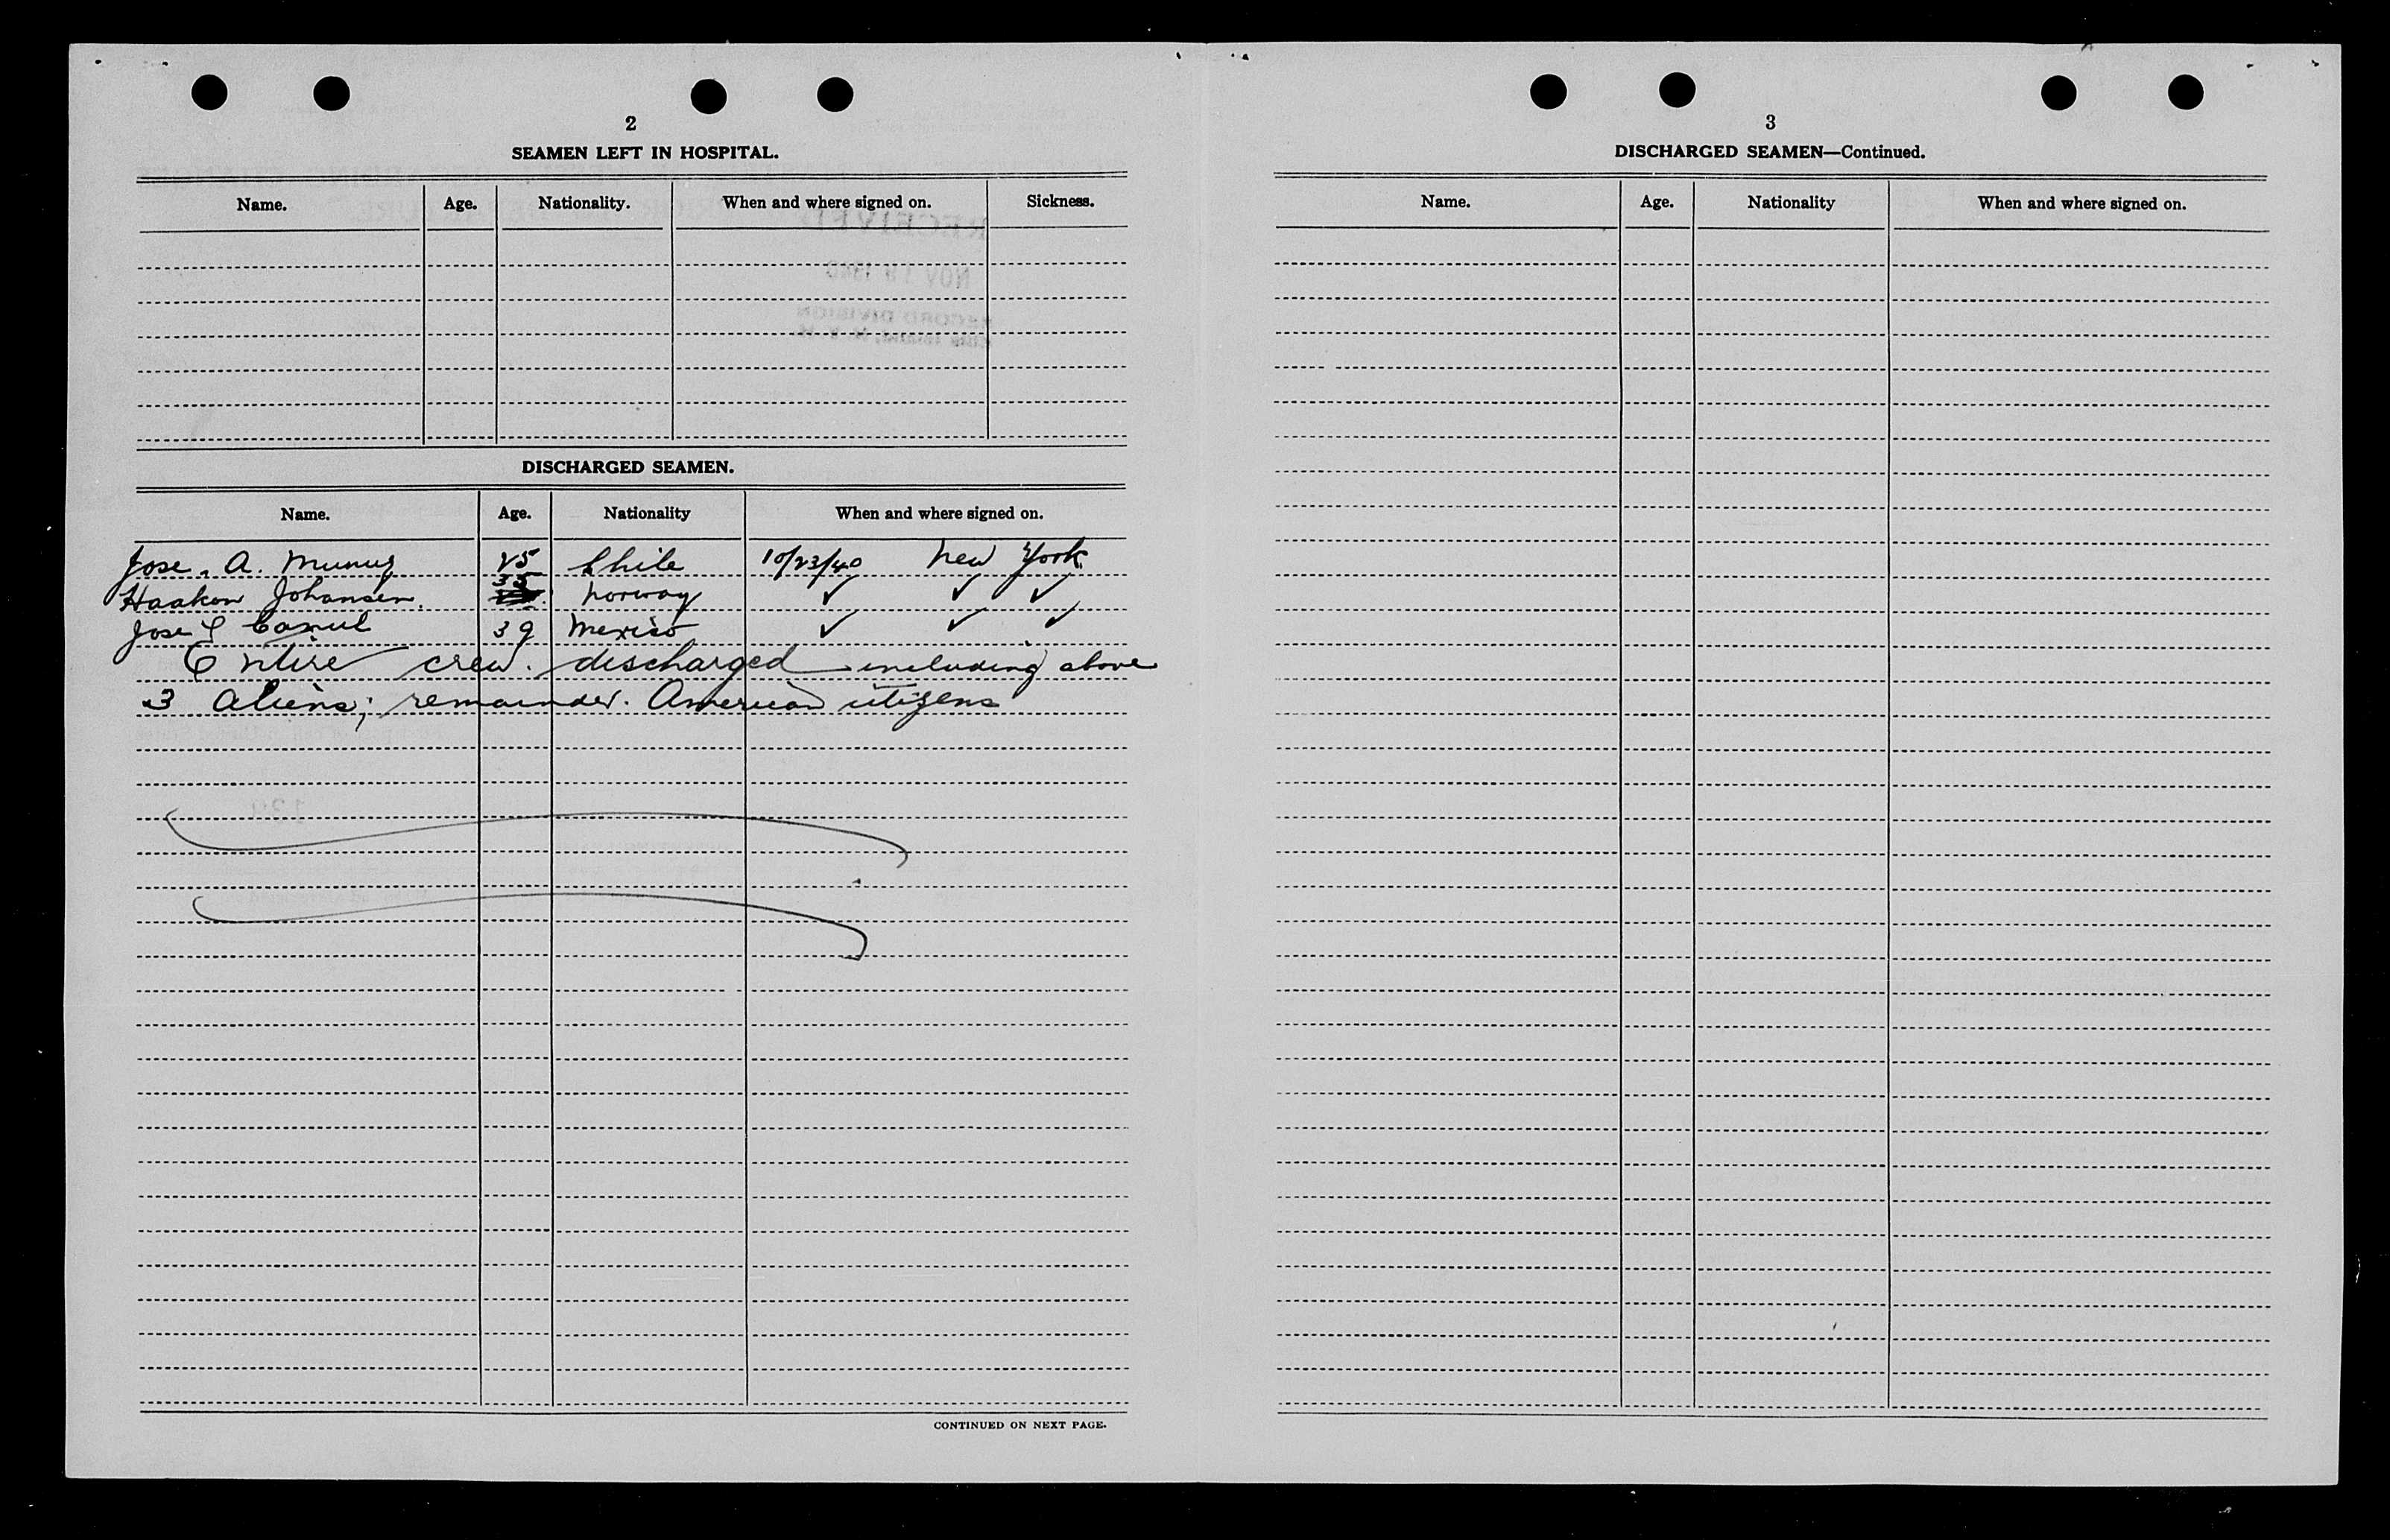 2
SEAMEN LEFT IN HOSPITAL.
Name. Age. Nationality. When and where signed on. Sickness.
RECEIVED
NOV 18 1940
RECORD DIVISION
Ellis Island, N. Y. H.
DISCHARGED SEAMEN.
Name. Age. Nationality When and where signed on.
Jose. A. Munuz 25 Chile 10/23/40 New York
Haakon Johansen. 35 Norway ✓ ✓ ✓
Jose Y Camul 39 Mexico ✓ ✓ ✓
Entire crew. discharged including above
3 Aliens; remainder. American citizens
CONTINUED ON NEXT PAGE.
3
DISCHARGED SEAMEN—Continued.
Name. Age. Nationality When and where signed on.